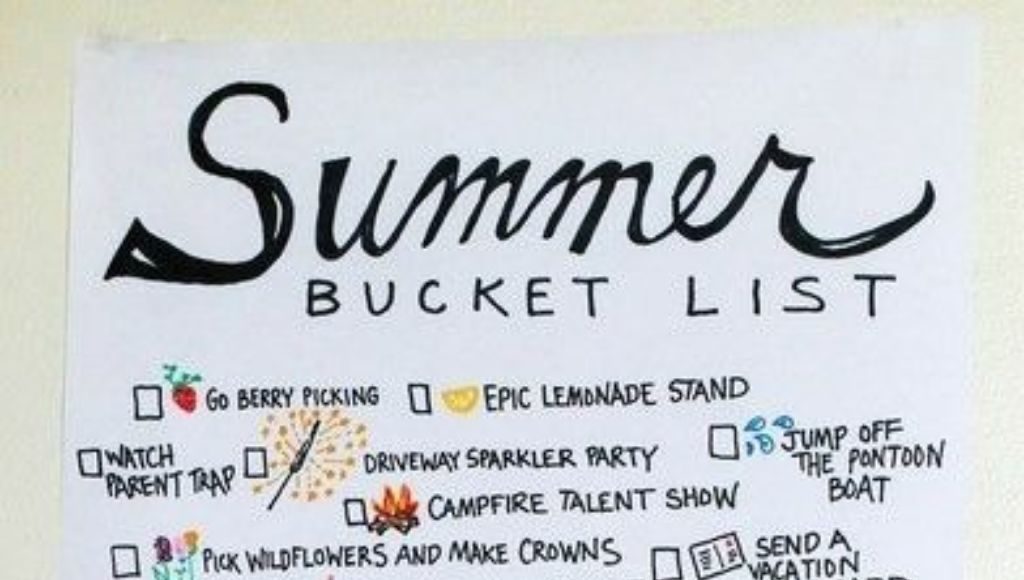 Summer
BUCKET LIST
GO BERRY PICKING
EPIC LEMONADE STAND
WATCH
PARENT TRAP
DRIVEWAY SPARKLER PARTY
JUMP OFF
THE PONTOON
BOAT
CAMPFIRE TALENT SHOW
PICK WILDFLOWERS AND MAKE CROWNS
SEND A
VACATION